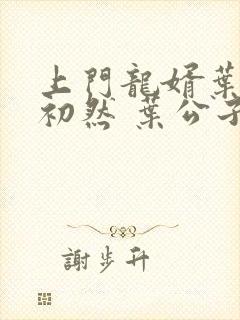 上門龍婿葉
初然 葉公子
謝步升